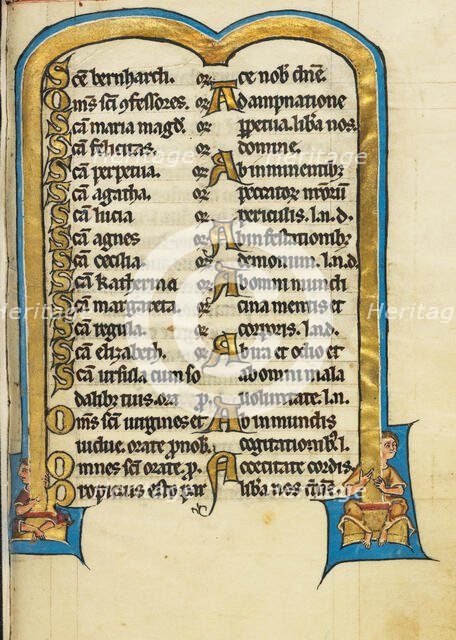 Sce bernharde. or
Oms sci ꝯfessores. or
Sca maria magd. or
Sca felicitas. or
Sca perpetua. or
Sca agatha. or
Sca lucia or
Sca agnes or
Sca cecilia. or
Sca katherina or
Sca margareta. or
Sca regula. or
Sca elizabeth. or
Sca ursula cum so
dalibꝰ tuis. ora p.
Oms sce uirgines et
uidue. orate p nob.
Omnes sci orate. p.
Propicius esto par
ce nob dne.
A dampnatione
ppetua. liba nos.
domine.
Ab inminentibꝫ
peccatoꝝ nroꝝ
periculis. l. n. d.
Ab infestationibꝫ
demonum. l. n. d.
Ab omni inmundi
cia mentis et
corporis. l. n. d.
Ab ira et odio et
ab omni mala
uoluntate. l. n.
Ab inmundis
cogitationibꝫ l.
A cecitate cordis.
liba nos dne.
Heritage
Heritage
Heritage
Heritage